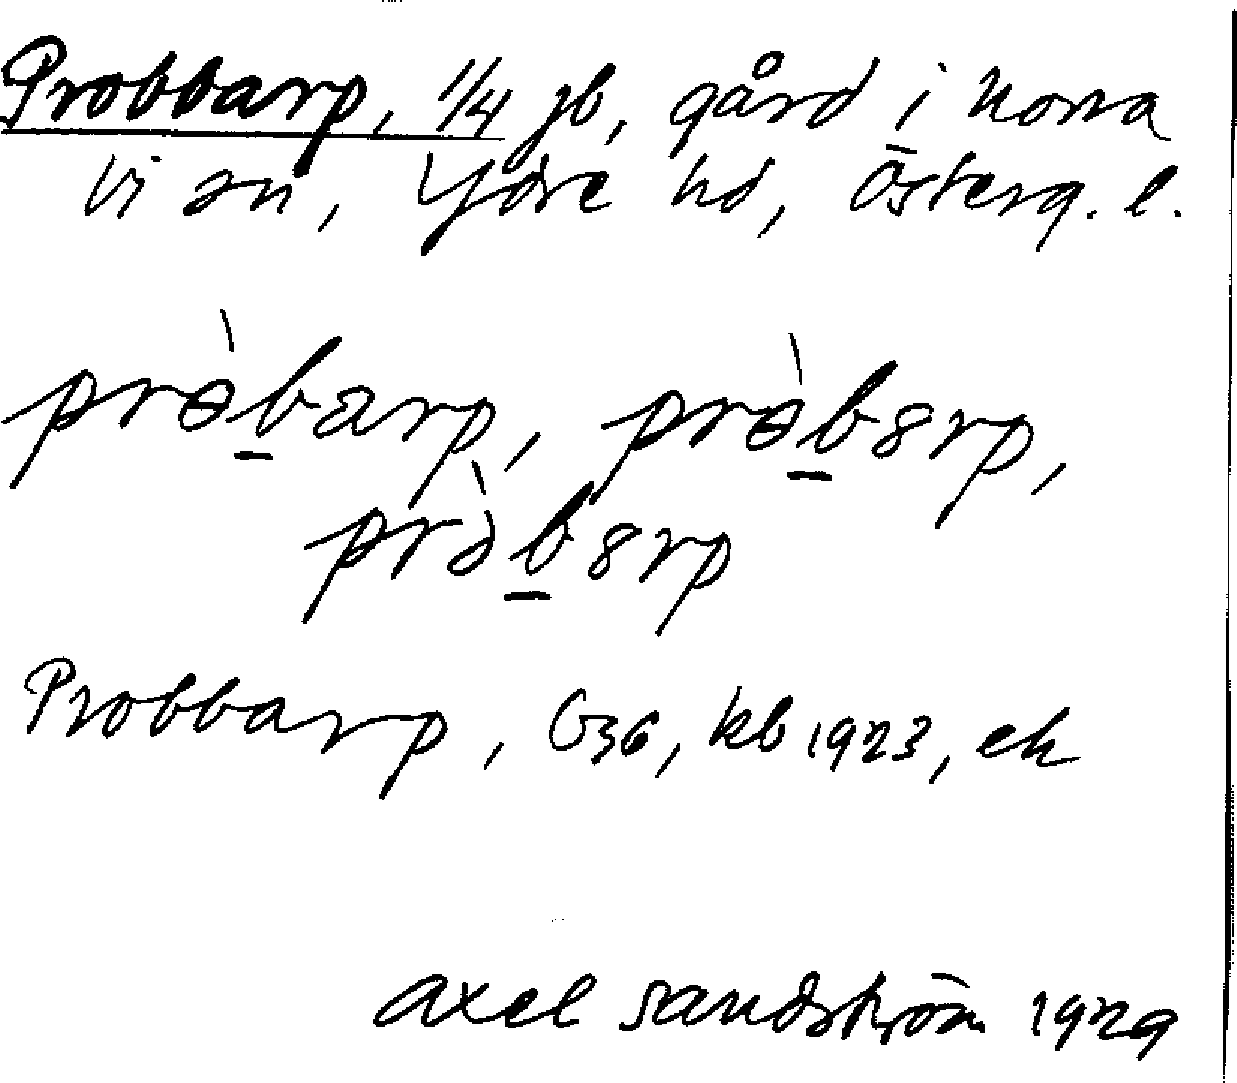 Probbarp, 1/4 jb, gård i norra
Vi sn, Ydre hd, Österg. l.
prɵ̀b̲arp, prɵ̀b̲ɞrp,
prɔ̀b̲ɞrp
Probbarp, G36, kb 1923, ek
axel sandström 1929